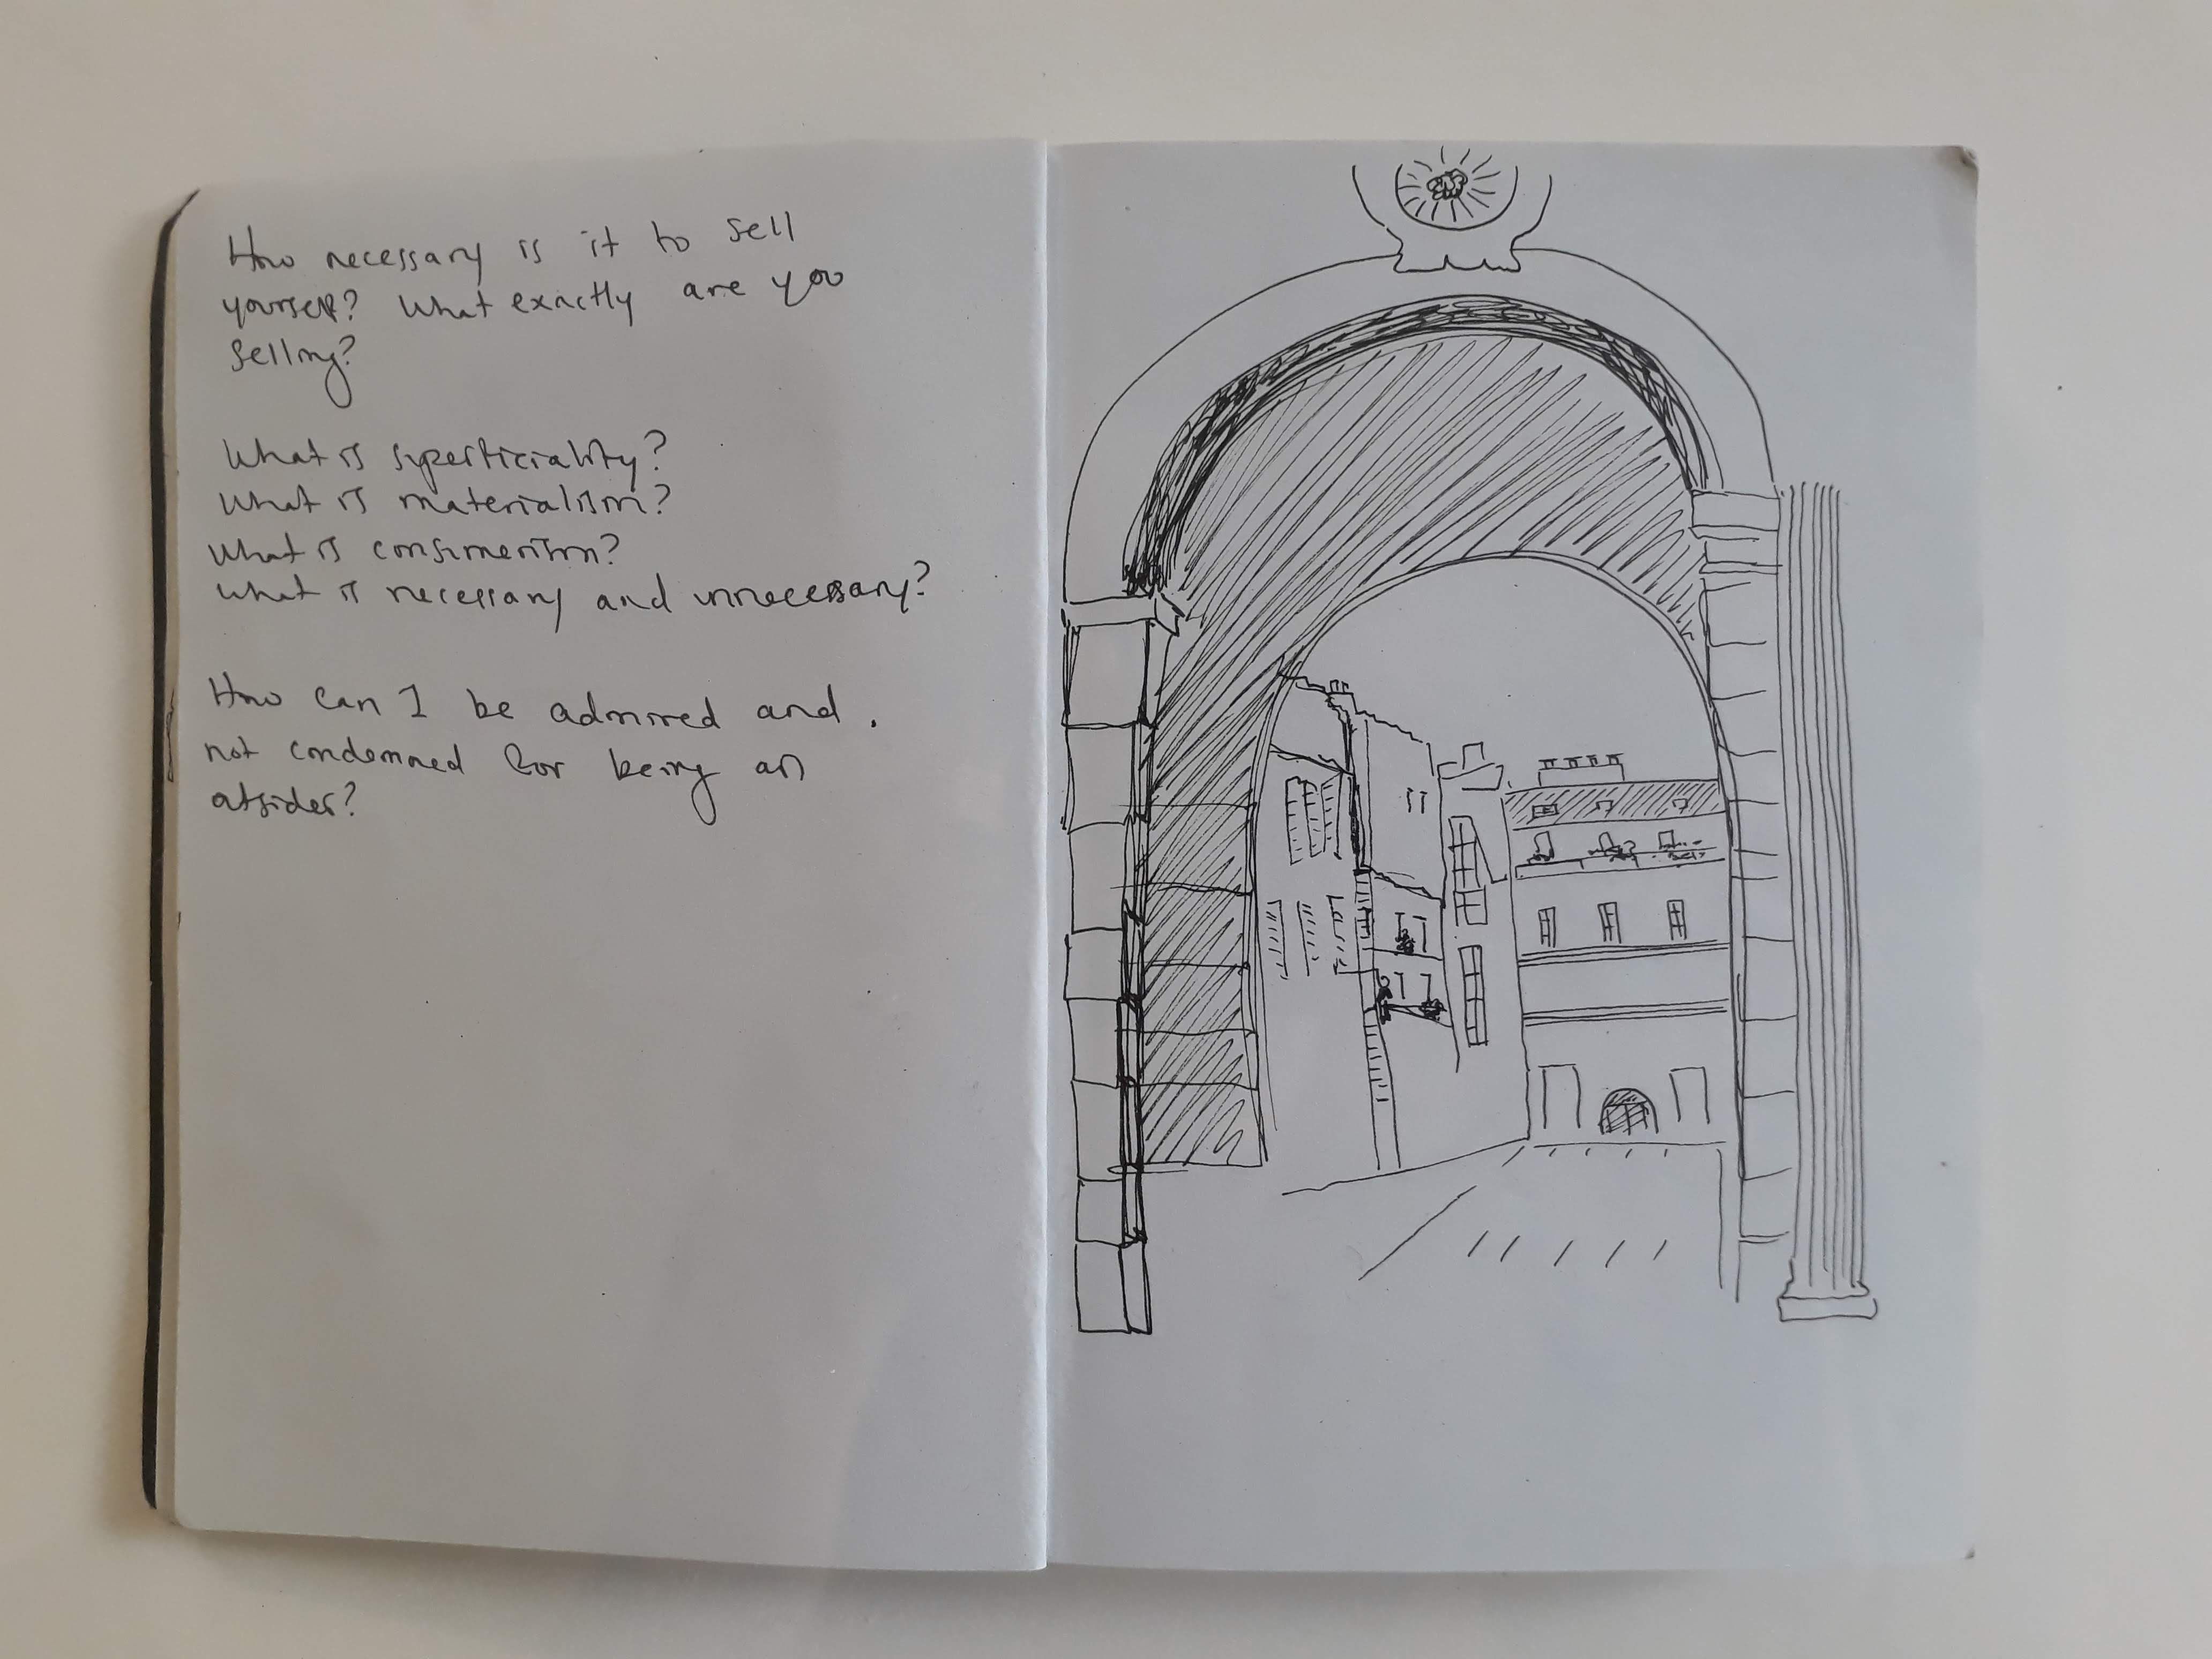 How necessary is it to sell
yourself? What exactly are you
selling?
What is superficiality?
What is materialism?
What is consumerism?
What is necessary and unnecessary?
How can I be admired and
not condemned for being an
outsider?